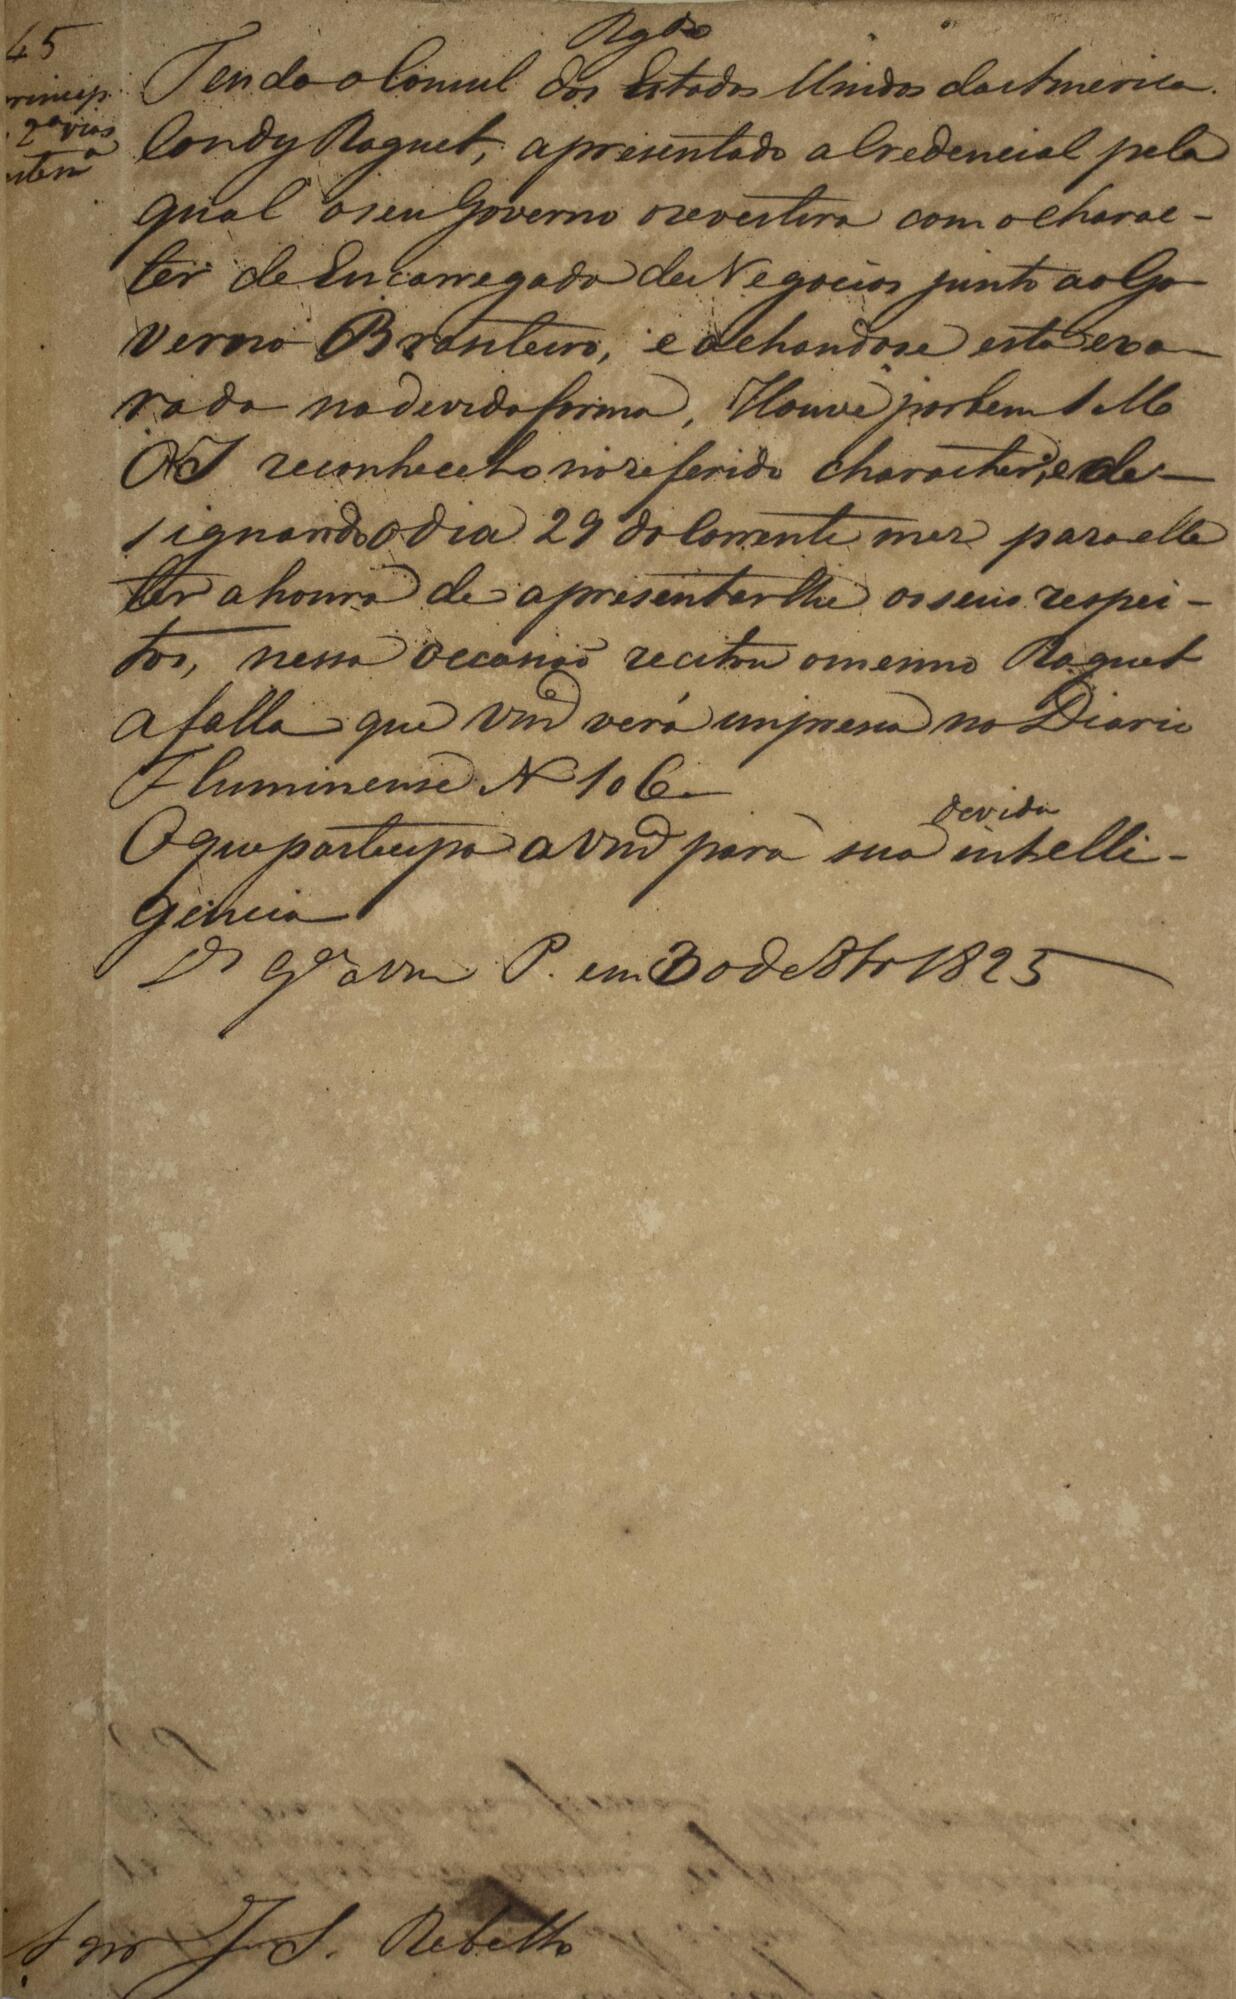 Rgdo
45
Tendo o Consul dos Estados Unidos da America.
Condy Raguet, apresentado a Credencial pela
qual o seu Governo o revestira com o charac-
ter de Encarregado de Negocios junto ao Go-
verno Brasileiro, e achandose esta exa-
rada na devida forma, Houve por bem S M
O I reconhecelo no referido character, e de-
signando o dia 29 do Corrente mez para elle
ter a honra de apresentarlhe os seus respei-
tos, nessa occasiaõ recitou o mesmo Raguet
a falla que Vm^ce verá impressa no Diario
Fluminense N 106.
devida
O que participo a Vm^ce para sua intelli-
gencia
D^s g^e a Vm P. em 30 de 8br 1825
Snr J S. Rebello